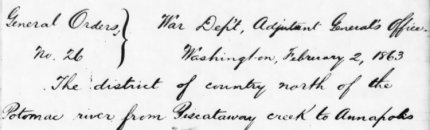 General Orders, } War Dep't, Adjutant General's Office.
No. 26 Washington, February 2, 1863
The district of country north of the
Potomac river from Piscataway creek to Annapolis